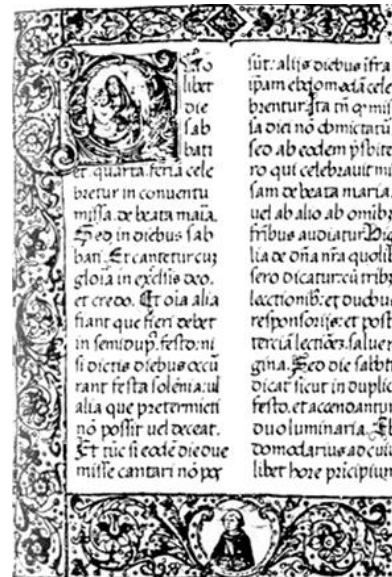 Quolibet
die
sab
bati
et quarta feria cele
bretur in conuentu
missa de beata maria.
Sed in diebus sab
bati. Et cantetur cuȝ
gloīa in excelsis deo.
et credo. Et oīa alia
fiant que fieri debēt
in semidup. festo: ni
si dictis diebus occū
rant festa solēnia: ul
alia que pretermicti
nō possīt uel deceat.
Et tūc si eodē die due
misse cantari nō pos
sūt: alijs diebus īfra
ipam ebdomodā cele
brentur. Ita tn̄ q mis
sa diei nō obmictatur
sed ab eodem p̄sbite
ro qui celebrauit mis
sam de beata maria.
uel ab alio ab omībꝫ
fr̄ibus audiatur. Vigi
lia de dn̄a nr̄a quolibꝫ
sero dicatur: cū tribꝫ
lectionibꝫ: et duobus
responsorijs: et post
terciā lectiōeꝫ. salue re
gina. Sed die sabbti
dicat͛ sicut in duplici
festo. et accendantur
duo luminaria. Eb
domodarius ad cuius
libet hore pricipium